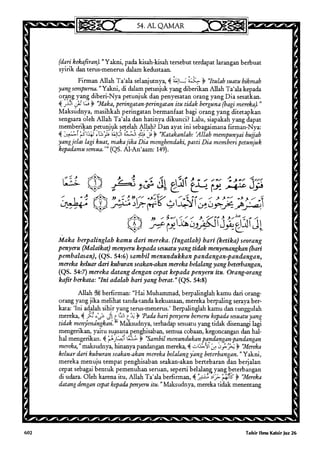 54. AL QAMAR
(dari kekafiran)." Yakni, pada kisah-kisah tersebut terdapat larangan berbuat
syirik dan terus-menerus dalam kedustaan.
Firman Allah Ta'ala selanjutnya, ﴿ حِكْمَةٌ بَالِغَةٌ ﴾ "Itulah suatu hikmah
yang sempurna." Yakni, di dalam petunjuk yang diberikan Allah Ta'ala kepada
orang yang diberi-Nya petunjuk dan penyesatan orang yang Dia sesatkan.
﴿ فَمَا تُغْنِ النُّذُرُ ﴾ "Maka, peringatan-peringatan itu tidak berguna (bagi mereka)."
Maksudnya, masihkah peringatan bermanfaat bagi orang yang ditetapkan
sengsara oleh Allah Ta'ala dan hatinya dikunci? Lalu, siapakah yang dapat
memberikan petunjuk setelah Allah? Dan ayat ini sebagaimana firman-Nya:
﴿ قُلْ فَلِلَّهِ الْحُجَّةُ الْبَالِغَةُ فَلَوْ شَاءَ لَهَدَاكُمْ أَجْمَعِينَ ﴾ "Katakanlah: 'Allah mempunyai hujjah
yang jelas lagi kuat, maka jika Dia menghendaki, pasti Dia memberi petunjuk
kepadamu semua.'" (QS. Al-An'aam: 149).
فَتَوَلَّ عَنْهُمْ يَوْمَ يَدْعُ الدَّاعِ إِلَىٰ شَيْءٍ نُّكُرٍ ۝ خُشَّعًا
أَبْصَارُهُمْ يَخْرُجُونَ مِنَ الْأَجْدَاثِ كَأَنَّهُمْ جَرَادٌ مُّنتَشِرٌ ۝ مُّهْطِعِينَ
إِلَى الدَّاعِ يَقُولُ الْكَافِرُونَ هَٰذَا يَوْمٌ عَسِرٌ ۝
Maka berpalinglah kamu dari mereka. (Ingatlah) hari (ketika) seorang
penyeru (Malaikat) menyeru kepada sesuatu yang tidak menyenangkan (hari
pembalasan), (QS. 54:6) sambil menundukkan pandangan-pandangan,
mereka keluar dari kuburan seakan-akan mereka belalang yang beterbangan,
(QS. 54:7) mereka datang dengan cepat kepada penyeru itu. Orang-orang
kafir berkata: "Ini adalah hari yang berat." (QS. 54:8)
Allah berfirman: "Hai Muhammad, berpalinglah kamu dari orang-
orang yang jika melihat tanda-tanda kekuasaan, mereka berpaling seraya ber-
kata: 'Ini adalah sihir yang terus-menerus.' Berpalinglah kamu dan tunggulah
mereka, ﴿ يَوْمَ يَدْعُ الدَّاعِ إِلَىٰ شَيْءٍ نُّكُرٍ ﴾ 'Pada hari penyeru berseru kepada sesuatu yang
tidak menyenangkan.'" Maksudnya, terhadap sesuatu yang tidak disenangi lagi
mengerikan, yaitu suasana penghisaban, semua cobaan, kegoncangan dan hal-
hal mengerikan. ﴿ خُشَّعًا أَبْصَارُهُمْ ﴾ "Sambil menundukkan pandangan-pandangan
mereka," maksudnya, hinanya pandangan mereka, ﴿ يَخْرُجُونَ مِنَ الْأَجْدَاثِ ﴾ "Mereka
keluar dari kuburan seakan-akan mereka belalang yang beterbangan." Yakni,
mereka menuju tempat penghisaban seakan-akan bertebaran dan berjalan
cepat sebagai bentuk pemenuhan seruan, seperti belalang yang beterbangan
di udara. Oleh karena itu, Allah Ta'ala berfirman, ﴿ مُّهْطِعِينَ إِلَى الدَّاعِ ﴾ "Mereka
datang dengan cepat kepada penyeru itu." Maksudnya, mereka tidak menentang
602
Tafsir Ibnu Katsir Juz 26